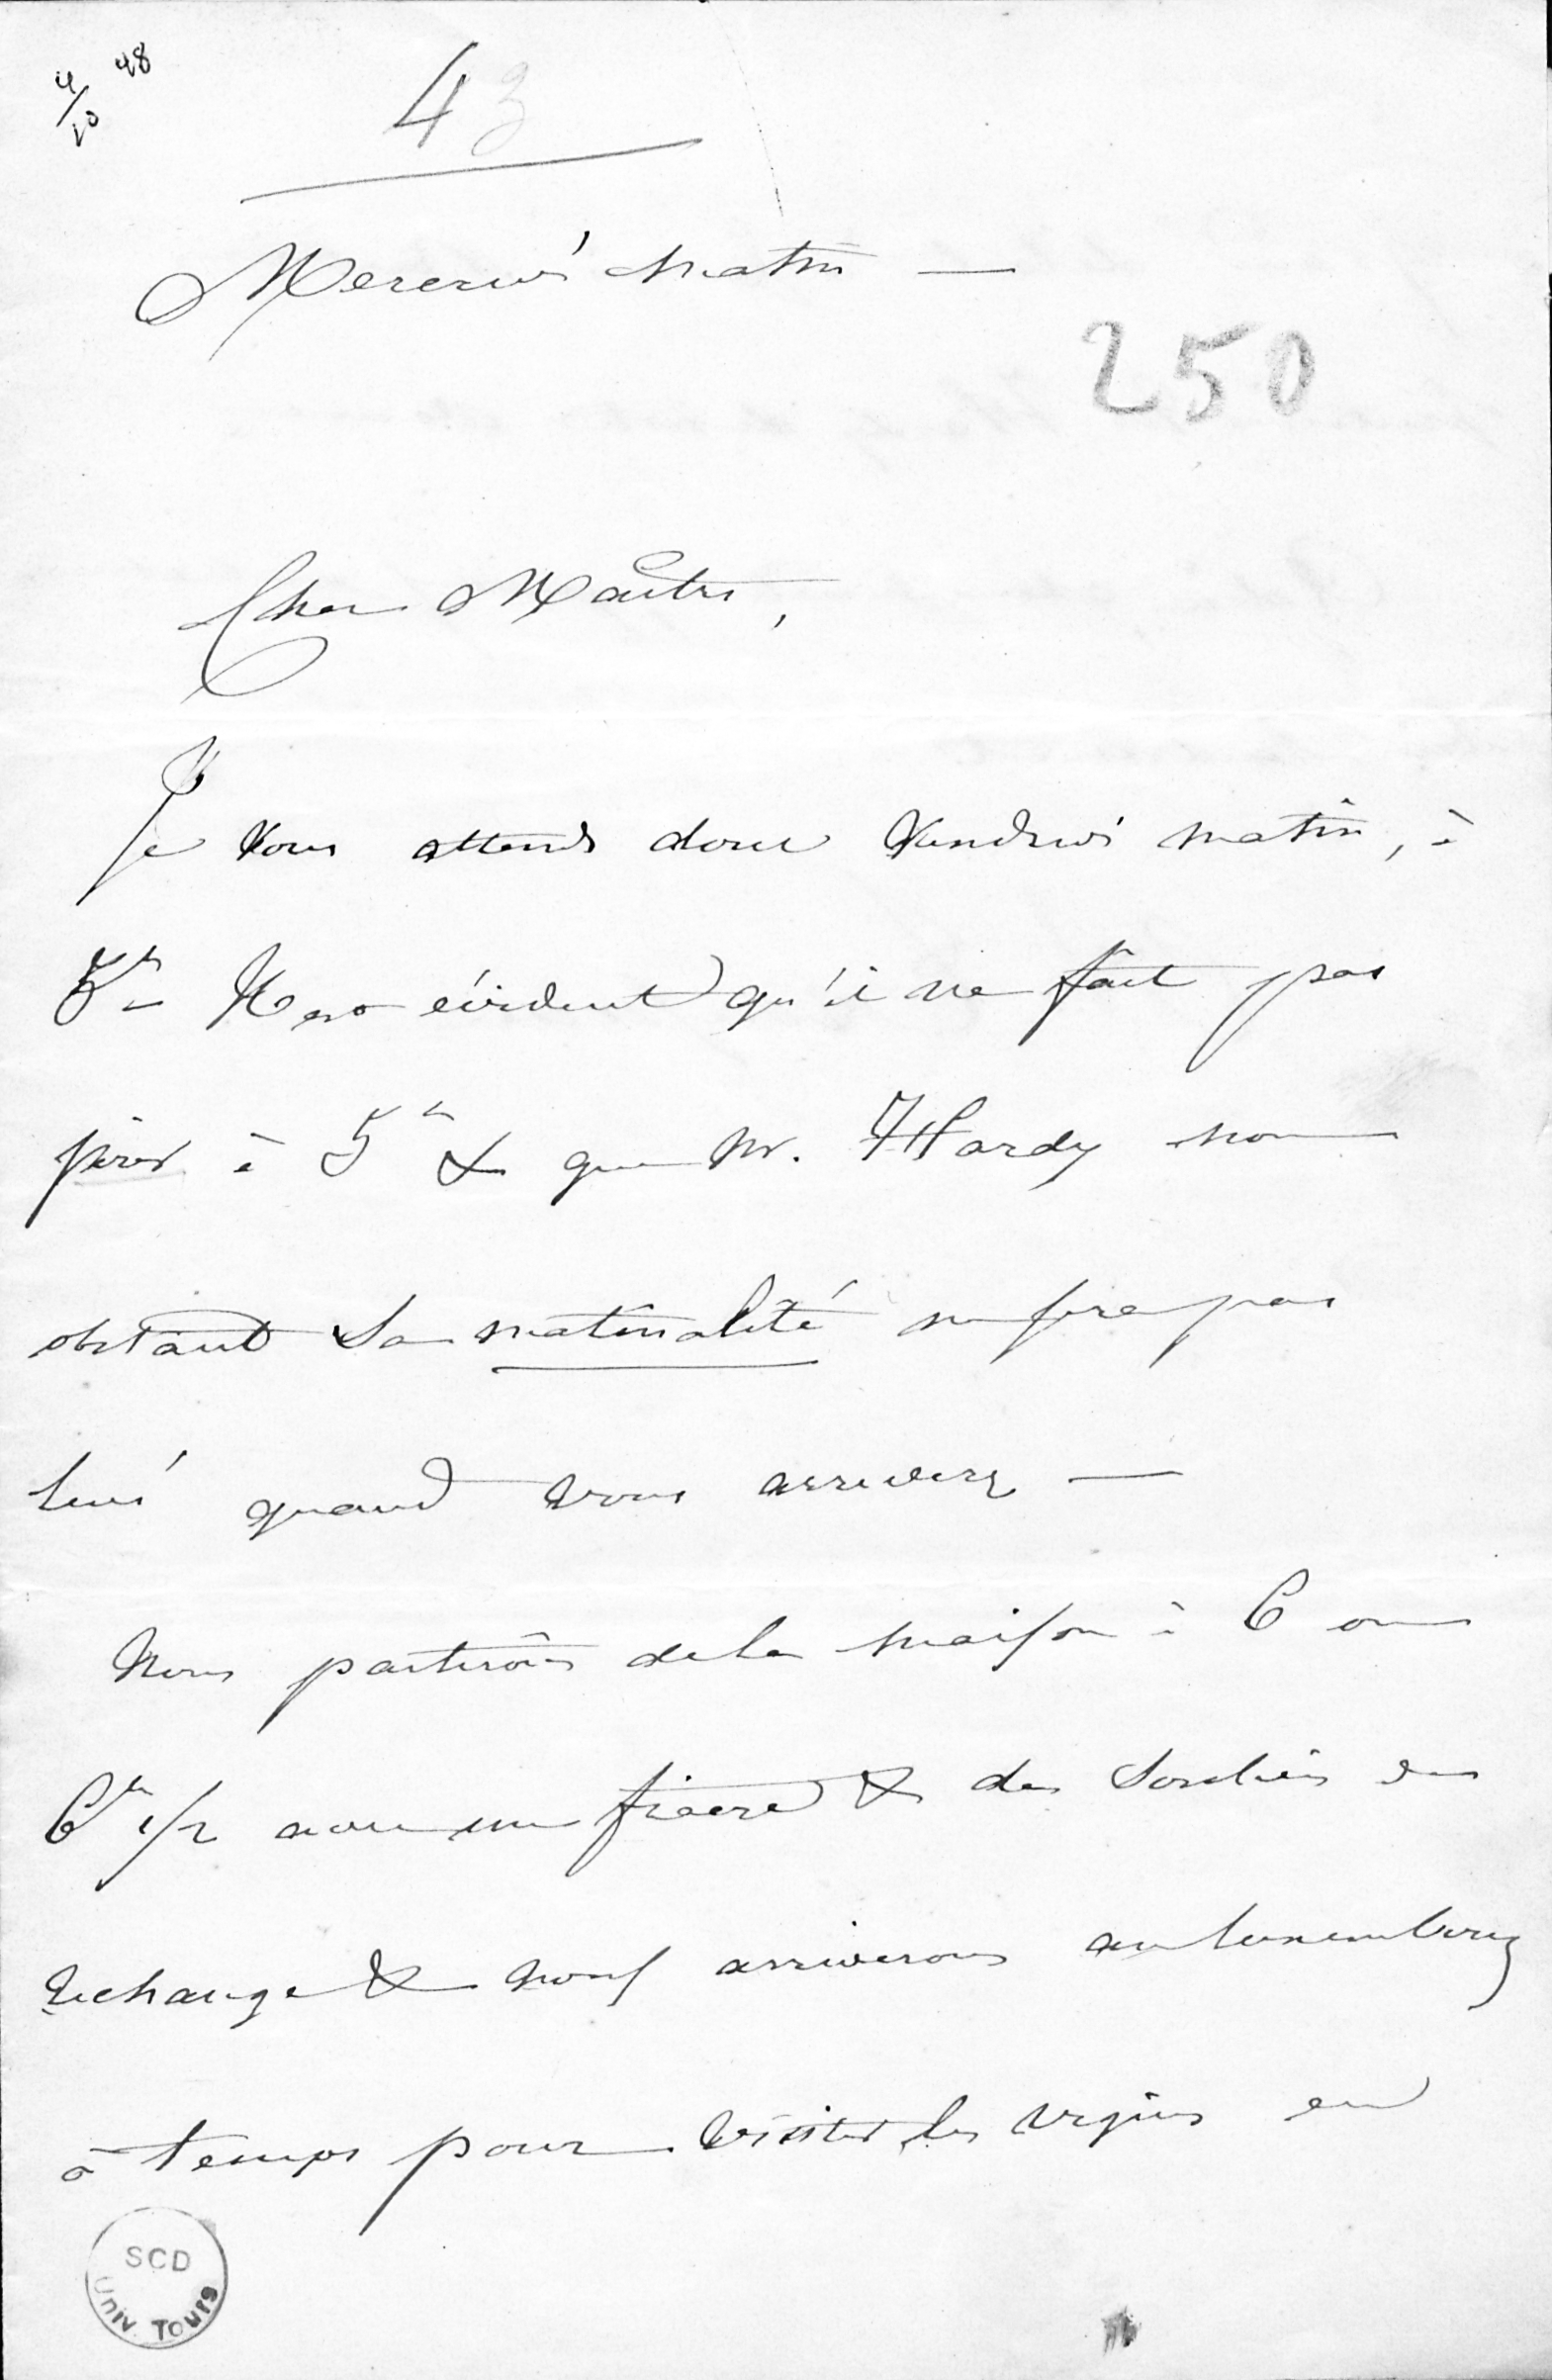 4/10 48
43
Mercredi matin —
250
Cher Maître,
Je vous attends donc Vendredi matin, à
5h Il est évident qu'il ne fait pas
jour à 5h & que M. Hardy non
obstant sa matinalité ne sera pas
levé quand vous arriverez —
Nous partirons de la maison à 6 ou
6h 1/2 avec un fiacre & des souliers de
rechange & nous arriverons au Luxembourg
à temps pour visiter les vignes en
SCD
Univ. Tours